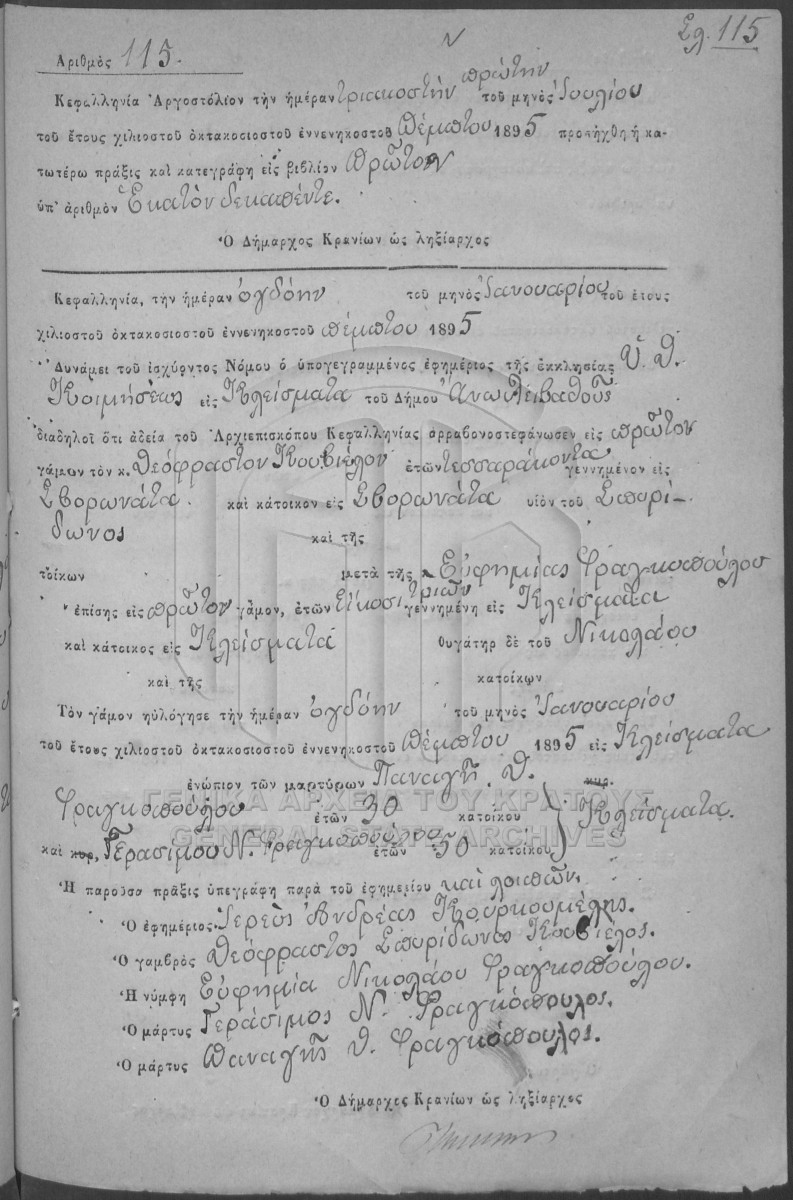 Σλ. 115
Ἀριθμὸς 115.
Κεφαλληνία Ἀργοστόλιον τὴν ἡμέραν τριακοστὴν πρώτην τοῦ μηνὸς Ἰουλίου
τοῦ ἔτους χιλιοστοῦ ὀκτακοσιοστοῦ ἐννενηκοστοῦ πέμπτου 1895 προσήχθη ἡ κα-
τωτέρω πρᾶξις καὶ κατεγράφη εἰς βιβλίον πρῶτον
ὑπ' ἀριθμὸν Ἑκατὸν δεκαπέντε.
Ὁ Δήμαρχος Κρανίων ὡς ληξίαρχος
Κεφαλληνία, τὴν ἡμέραν ὀγδόην τοῦ μηνὸς Ἰανουαρίου τοῦ ἔτους
χιλιοστοῦ ὀκτακοσιοστοῦ ἐννενηκοστοῦ πέμπτου 1895
Δυνάμει τοῦ ἰσχύοντος Νόμου ὁ ὑπογεγραμμένος ἐφημέριος τῆς ἐκκλησίας Ὑ. Θ.
Κοιμήσεως εἰς Κλείσματα τοῦ Δήμου Ἄνω Λειβαθοῦς
διαδηλοῖ ὅτι ἀδεία τοῦ Ἀρχιεπισκόπου Κεφαλληνίας ἀρραβονοστεφάνωσεν εἰς πρῶτον
γάμον τὸν κ. Θεόφραστον Κουβιέλον ἐτῶν τεσσαράκοντα γεννημένον εἰς
Σβορωνάτα καὶ κάτοικον εἰς Σβορωνάτα υἱὸν τοῦ Σπυρί-
δωνος καὶ τῆς
τοίκων μετὰ τῆς κ. Εὐφημίας Φραγκοπούλου
ἐπίσης εἰς πρῶτον γάμον, ἐτῶν Εἴκοσι τριῶν γεννημένη εἰς Κλείσματα
καὶ κάτοικος εἰς Κλείσματα θυγάτηρ δὲ τοῦ Νικολάου
καὶ τῆς κατοίκων
Τὸν γάμον ηὐλόγησε τὴν ἡμέραν ὀγδόην τοῦ μηνὸς Ἰανουαρίου
τοῦ ἔτους χιλιοστοῦ ὀκτακοσιοστοῦ ἐννενηκοστοῦ πέμπτου 1895 εἰς Κλείσματα
ἐνώπιον τῶν μαρτύρων Παναγῆ Θ. κυρ.
Φραγκοπούλου ἐτῶν 30 κατοίκου Κλείσματα.
καὶ κυρ. Γερασίμου Ν. Φραγκοπούλου ἐτῶν 50 κατοίκου
Ἡ παροῦσα πρᾶξις ὑπεγράφη παρὰ τοῦ ἐφημερίου καὶ λοιπῶν.
Ὁ ἐφημέριος Ἱερεὺς Ἀνδρέας Κουρκουμέλης.
Ὁ γαμβρὸς Θεόφραστος Σπυρίδωνος Κουβιέλος.
Ἡ νύμφη Εὐφημία Νικολάου Φραγκοπούλου.
Ὁ μάρτυς Γεράσιμος Ν. Φραγκόπουλος.
Ὁ μάρτυς Παναγῆς Θ. Φραγκόπουλος.
Ὁ Δήμαρχος Κρανίων ὡς ληξίαρχος
ΓΕΝΙΚΑ ΑΡΧΕΙΑ ΤΟΥ ΚΡΑΤΟΥΣ
GENERAL STATE ARCHIVES